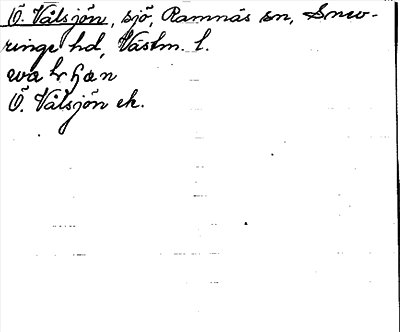 Ö. Välsjön, sjö, Ramnäs sn, Snev-
ringe hd, Västm. l.
Ö. Välsjön ek.